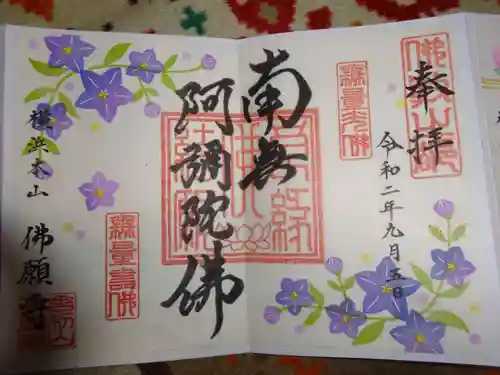 奉拝
令和二年九月五日
南無
阿彌陀佛
横浜本山
佛願寺
無量光佛
無量壽佛